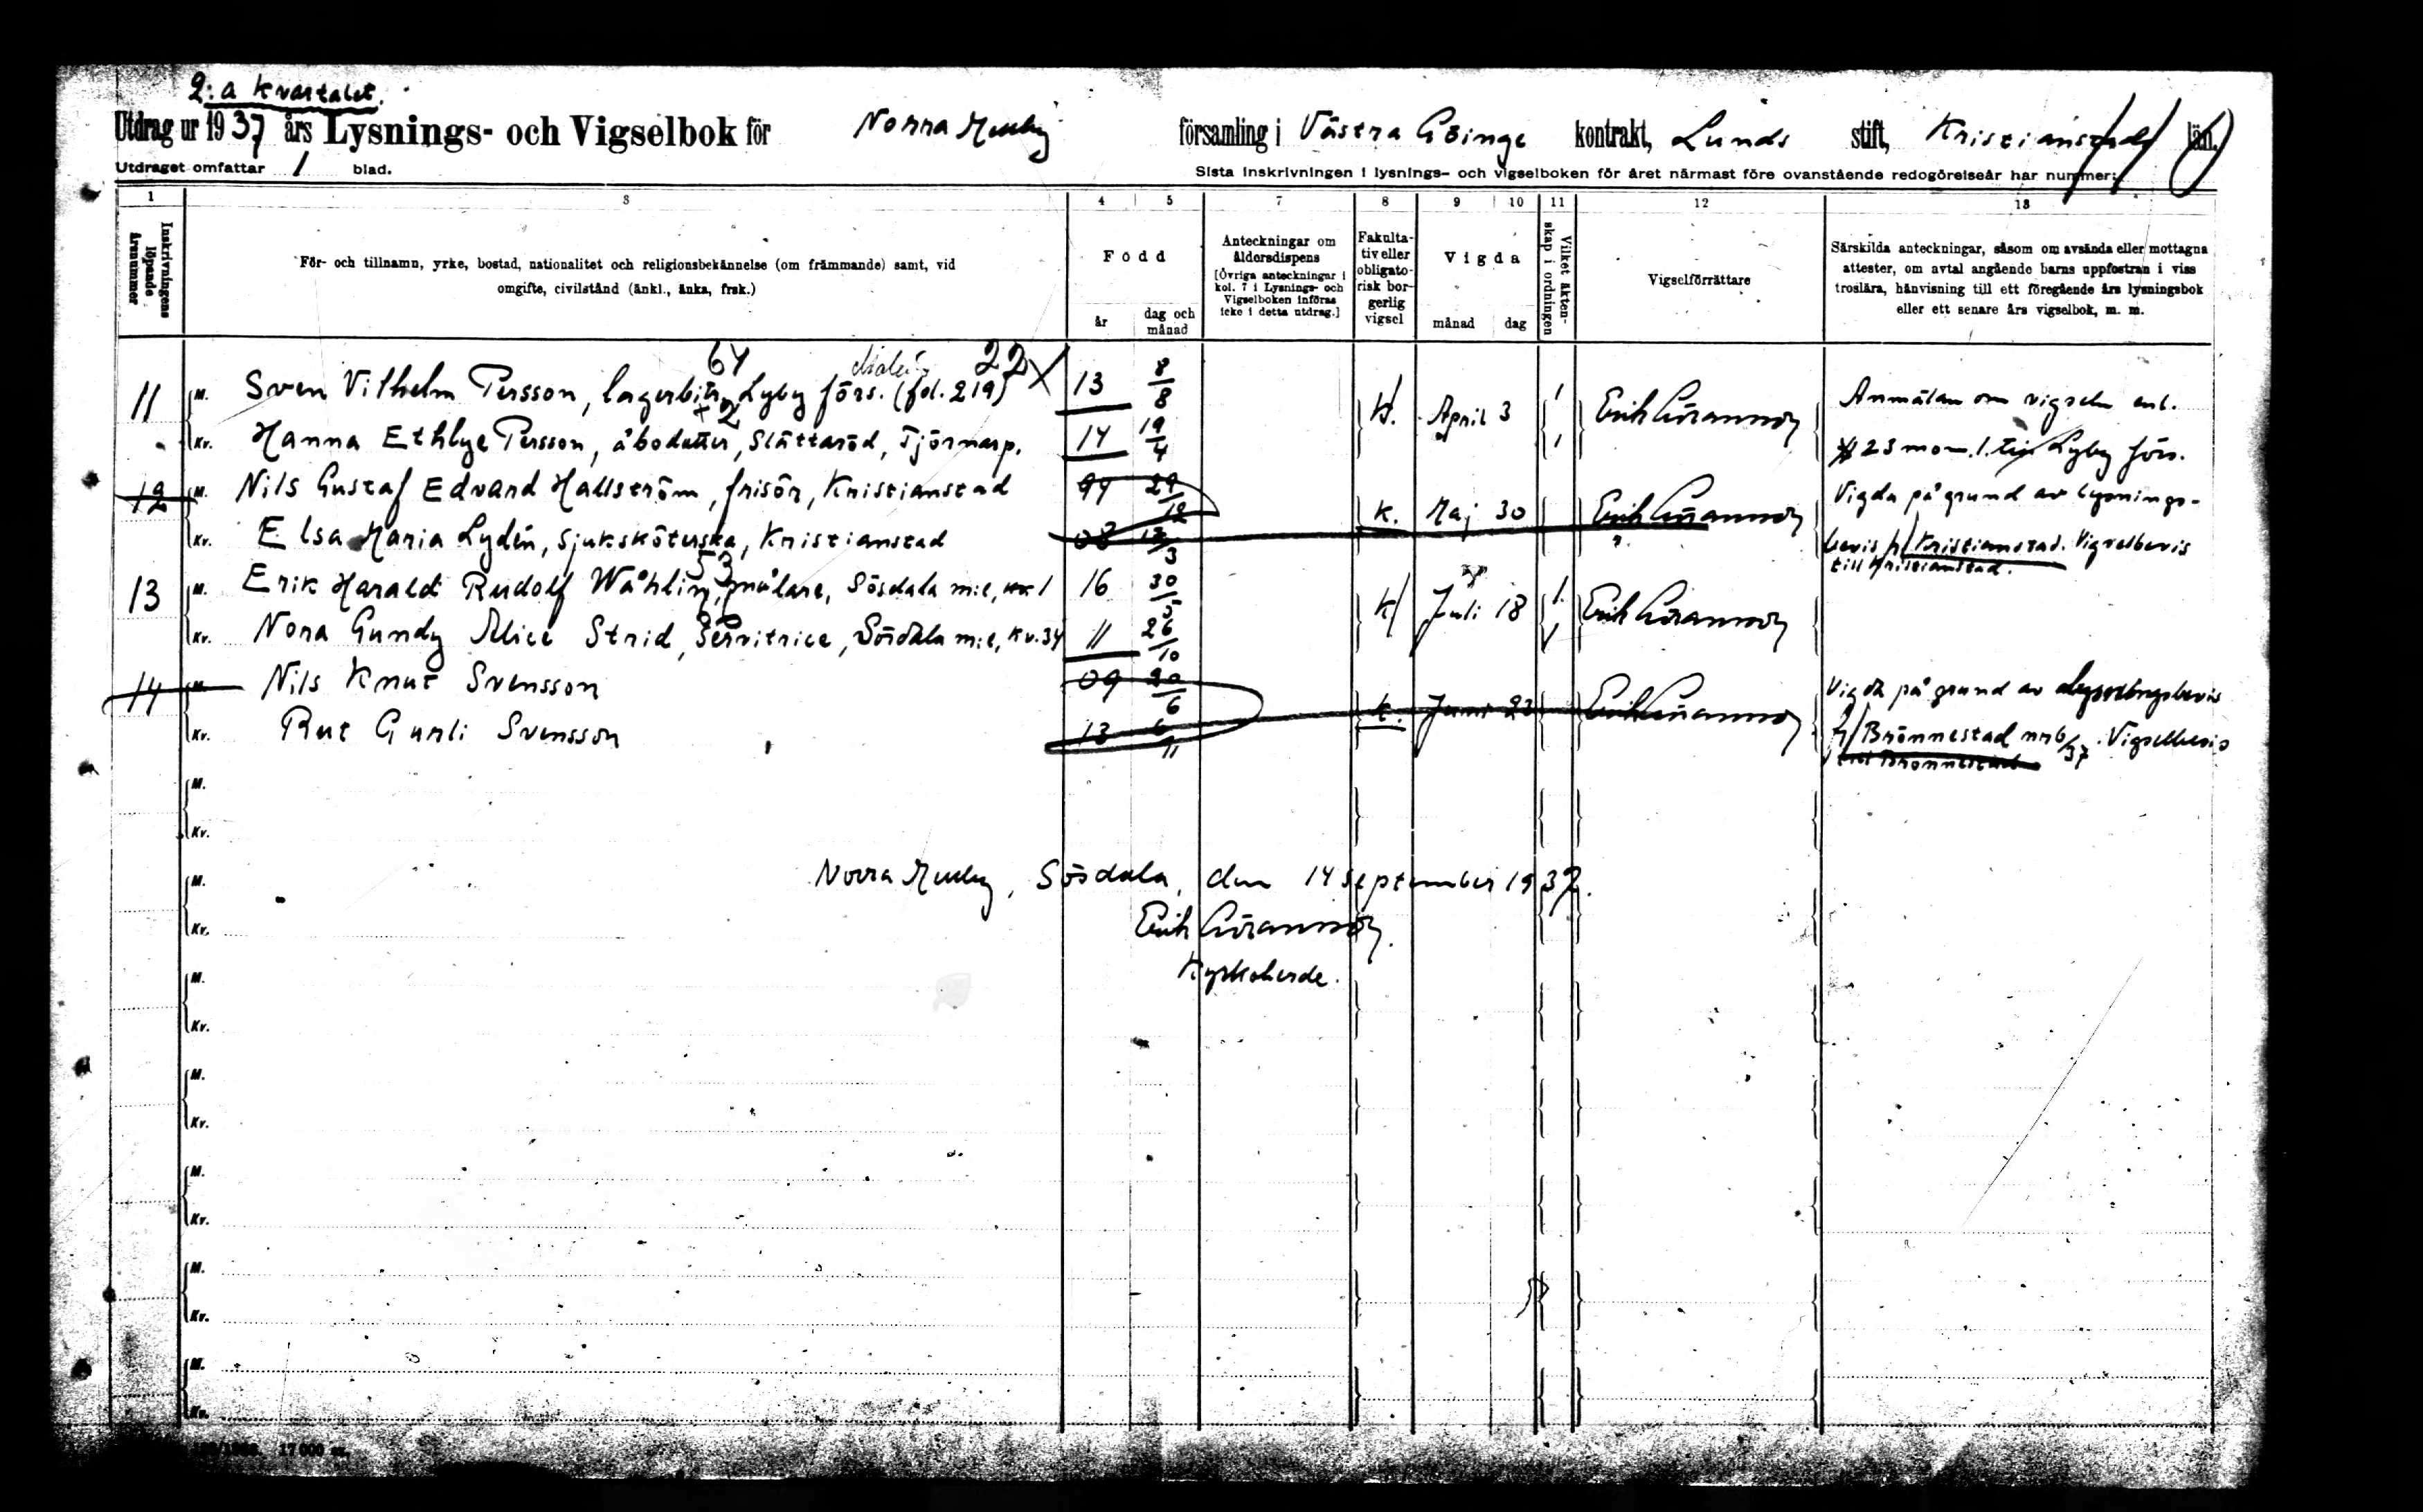 2:a kvartalet.
Utdrag ur 1937 års Lysnings- och Vigselbok för Norra Mellby församling i Västra Göinge kontrakt, Lunds stift, Kristianstads län.
Utdraget omfattar 1 blad.
Sista inskrivningen i lysnings- och vigselboken för året närmast före ovanstående redogörelseår har nummer:
1 3 4 5 7 8 9 10 11 12 13
Inskrivningens löpande årsnummer
För- och tillnamn, yrke, bostad, nationalitet och religionsbekännelse (om främmande) samt, vid omgifte, civilstånd (änkl., änka, frsk.)
Född
år
dag och månad
Anteckningar om åldersdispens
[Övriga anteckningar i kol. 7 i Lysnings- och Vigselboken införas icke i detta utdrag.]
Fakultativ eller obligatorisk borgerlig vigsel
Vigda
månad dag
Vilket äktenskap i ordningen
Vigselförrättare
Särskilda anteckningar, såsom om avsända eller mottagna attester, om avtal angående barns uppfostran i viss troslära, hänvisning till ett föregående års lysningsbok eller ett senare års vigselbok, m. m.
64 22 X
11 M. Sven Vilhelm Persson, lagerbitr. Lyby förs. (fd. 219) 13 8/8 k. April 3 1 Erik Göransson Anmälan om vigseln enl.
Kv. Hanna Ethlye Persson, åbodotter, Slättaröd, Tjörnarp. 14 19/4 1 § 23 mom. 1. till Lyby förs.
12 M. Nils Gustaf Edvard Hallström, frisör, Kristianstad 99 29/12 k. Maj 30 Erik Göransson Vigda på grund av lysnings-
Kv. Elsa Maria Lydén, sjuksköterska, Kristianstad 08 12/3 bevis fr/ Kristianstad. Vigselbevis
till Kristianstad.
53
13 M. Erik Harald Rudolf Wåhlin, målare, Sösdala m:e, kv. 1 16 30/5 k Juli 18 1 Erik Göransson
Kv. Nora Gundy Alice Strid, Servitrice, Sösdala m:e, kv. 34 11 26/10 1
14 M. Nils Knut Svensson 09 20/6 k. Juni 23 Erik Göransson Vigda på grund av lysningsbevis
Kv. Rut Gunli Svensson 13 6/11 fr/ Brönnestad nr 6/37. Vigselbevis
till Brönnestad
M.
Kv.
Norra Mellby, Sösdala, den 14 september 1937.
M.
Kv. Erik Göransson
Kyrkoherde.
M.
Kv.
M.
Kv.
M.
Kv.
M.
Kv.
M.
Kv.
17 000 ex.